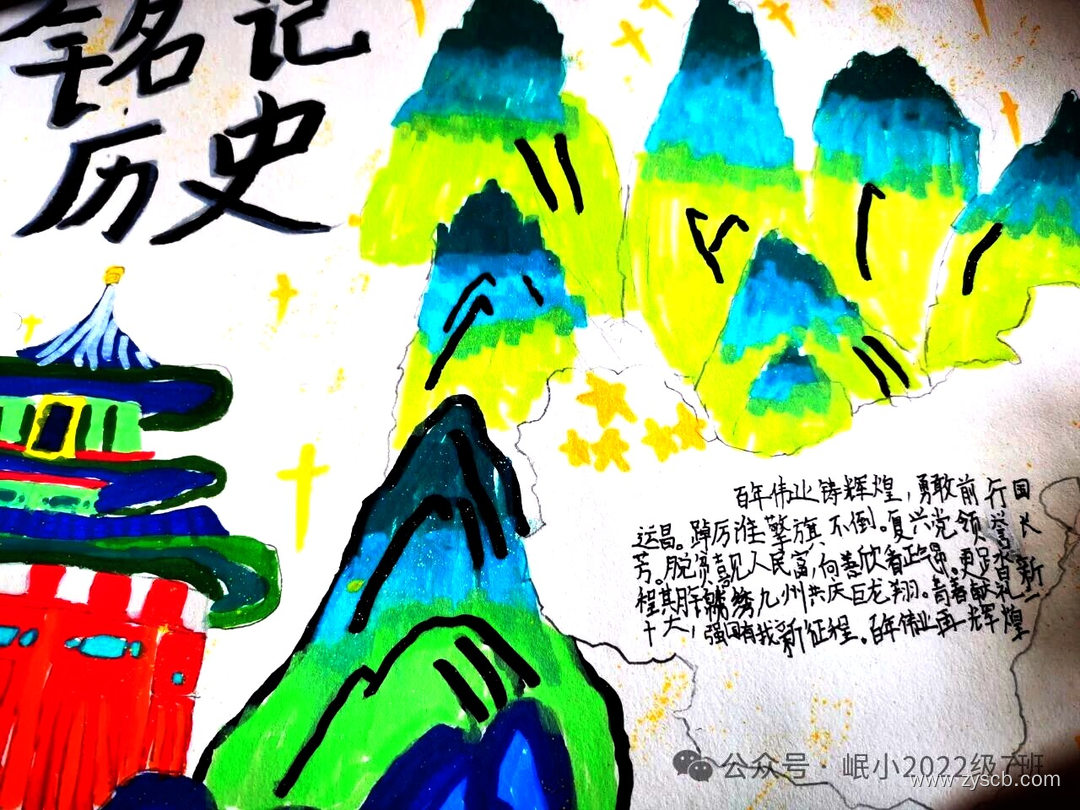 铭记
历史
百年伟业铸辉煌,勇敢前行国
运昌。踔厉准擎旗不倒。复兴党领誉长
芳。脱贫喜见人民富,向善欣看政强。更足新
程期锦绣九州共庆巨龙翔。青春献礼二
十大,强国有我新征程。百年伟业再辉煌
公众号·岷小2022级7班
www.zyscb.com